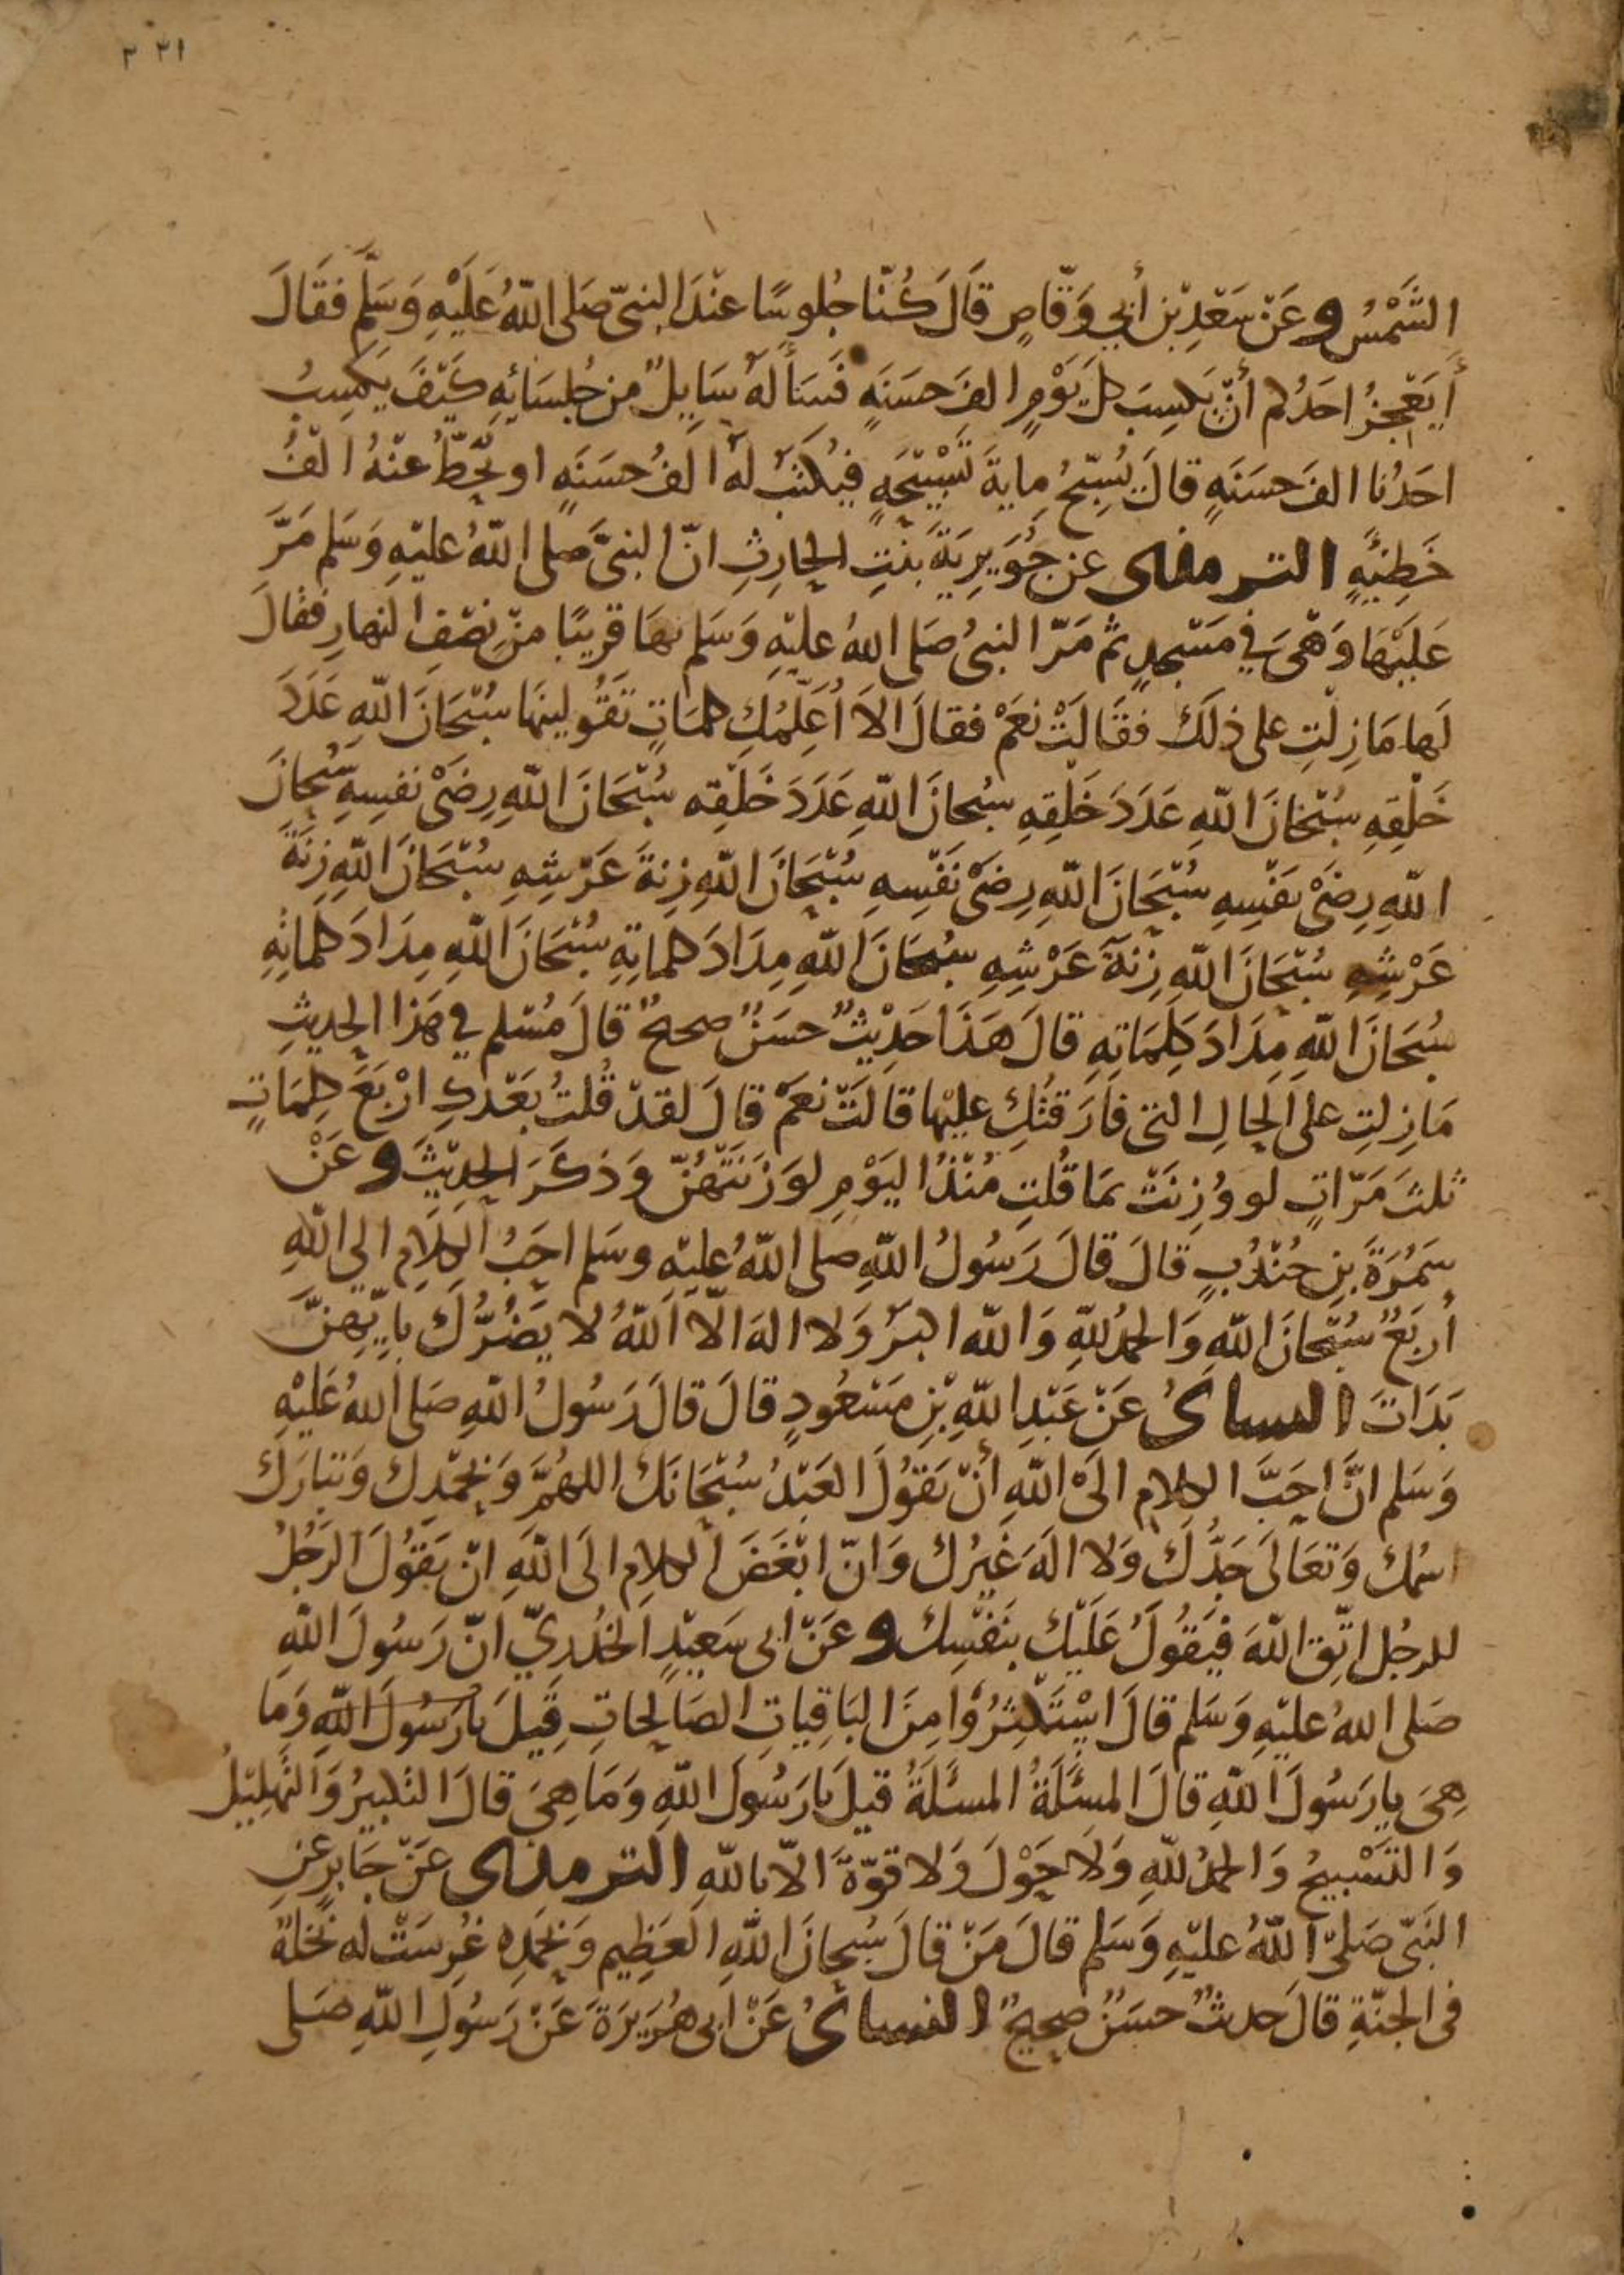 ٢٢١ ٢
الشَّمْسُ وعَنْ سَعْدِ بْنِ أَبِي وَقَّاصٍ قَالَ كُنَّا جُلوسًا عنْدَ النبيّ صَلى اللهُ عَلَيْهِ وَسَلَّم فقَالَ
أيَعْجِزُ احَدُكم أنْ يَكسِبَ كلَ يَوْمٍ الفَ حسَنَةٍ فَسَأَلهُ سَايِلٌ من جُلسَائِهِ كَيْفَ يَكسِبُ
احَدُنا الفَ حسَنَةٍ قالَ يُسَبّحُ مِايةَ تَسْبيْحَةٍ فيُكتَبُ لهُ الفُ حسَنَةٍ او يُحَطُّ عنْهُ الْفُ
خَطِئيَةٍ الترمذى عن جُوَيرِيَةَ بنْتِ الحَارِثِ انّ النبيَّ صلى اللهُ عليْهِ وَسَلم مَرَّ
عَلَيْهَا وَهْىَ في مَسْجِدٍ ثم مَرّ النبىُ صَلى اللهُ عليْهِ وَسَلم بهَا قريبًا منْ نِصْفِ النهارِ فقالَ
لَها مَا زِلْتِ على ذلَك فقَالَتْ نعَمْ فقالَ الاَ أُعَلِّمُكِ كلمَاتٍ تَقُولينهَا سُبْحَانَ اللهِ عَدَدَ
خَلْقِهِ سُبْحَانَ اللهِ عَدَدَ خَلقِهِ سُبحانَ اللهِ عَدَدَ خَلْقه سُبْحَانَ اللهِ رِضَىْ نفسِهِ سُبحانَ
اللهِ رِضَىْ نَفْسِهِ سُبْحَانَ اللهِ رِضَىْ نَفْسِهِ سُبْحَانَ اللهِ زِنةَ عَرْشِهِ سُبْحَانَ اللهِ زِنَةَ
عَرْشِهِ سُبْحَانَ اللهِ زِنَةَ عَرْشِهِ سُبحَانَ اللهِ مِدَادَ كلماتِهِ سُبْحَانَ اللهِ مِدَادَ كلماتِهِ
سُبحَانَ اللهِ مِدَادَ كَلِمَاتِهِ قالَ هَذَا حَدِيْثٌ حسَنٌ صحيحٌ قالَ مُسْلم في هَذا الحديثِ
مَا زِلتِ على الحالِ التى فَارَقتُكِ عليْها قالَتْ نعَمْ قالَ لقدْ قُلتُ بَعْدكِ ارْبَعَ كلِمَاتٍ
ثلثَ مَرّاتٍ لو وُزِنَتْ بمَا قُلتِ مُنْذُ اليَوْمِ لوَزَنَتْهُنّ وَذكَرَ الحديْثَ وعَنْ
سَمُرَةَ بنِ جُنْدُبٍ قالَ قالَ رَسُولُ اللهِ صلى اللهُ عليْهِ وسَلم احَبُ الكلَامِ الى اللهِ
أربَعٌ سُبْحانَ اللهِ وَالحمدُ للهِ وَالله اكبرُ وَلا الهَ الّا اللهُ لا يَضُرُّكَ بايّهِنَّ
بَدَاتَ النساىُ عَنْ عَبْدِ اللهِ بْنِ مَسْعُودٍ قالَ قالَ رَسُولُ اللهِ صَلى اللهُ عَلَيْهِ
وَسَلم انَّ احَبَّ الكلامِ الَىْ اللهِ أنْ يَقوُلَ العَبْدُ سُبْحَانَك اللهُمَّ وَبحَمْدِك وَتبَارَك
اسْمُك وَتعَالىَ جَدُّكَ وَلا الهَ غَيْرُك وَانّ ابْغَضَ الكلامِ الىَ اللهِ انْ يَقوُلَ الرَّجُلُ
للرجُل اتّقِ اللهَ فيَقُولُ عَلَيْك بنَفْسِك وعَنْ ابى سَعِيْدٍ الخُدرِيّ انّ رَسُولَ اللهِ
صَلى اللهُ عليْهِ وَسَلم قالَ اسْتَكثِرُوْا مِنَ البَاقِيَاتِ الصَالحَاتِ قِيْلَ يا رَسُولَ اللهِ وَما
هِىَ يا رَسُولَ اللهِ قالَ المسْئَلَةُ المسئَلَةُ قيلَ يا رَسُولَ اللهِ وَمَا هِىَ قالَ التكبيرُ وَالتهلِيْلُ
وَالتَسْبيحُ وَالحمدُ للهِ وَلَا حَوْلَ وَلا قوّةَ الّا باللهِ الترمذى عَنْ جَابرٍ عَنِ
النَبّى صَلىّ اللهُ عليْهِ وَسَلم قالَ مَنْ قالَ سُبحانَ اللهِ العَظِيم وَبحَمدِه غُرِسَتْ له نخلةٌ
فى الجنّةِ قالَ حديثٌ حسَنٌ صحِيحٌ النساىُ عَنْ ابى هُرَيرَةَ عَنْ رَسُولِ اللهِ صَلى